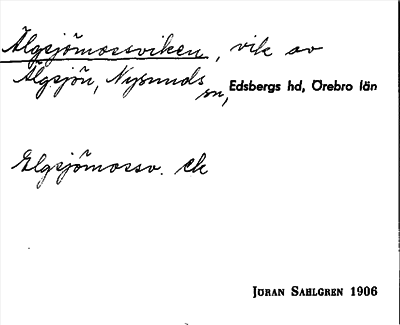 Älgsjömossviken, vik av
Älgsjön, Nysunds
sn, Edsbergs hd, Örebro län
Elgsjömossv. ek
JÖRAN SAHLGREN 1906